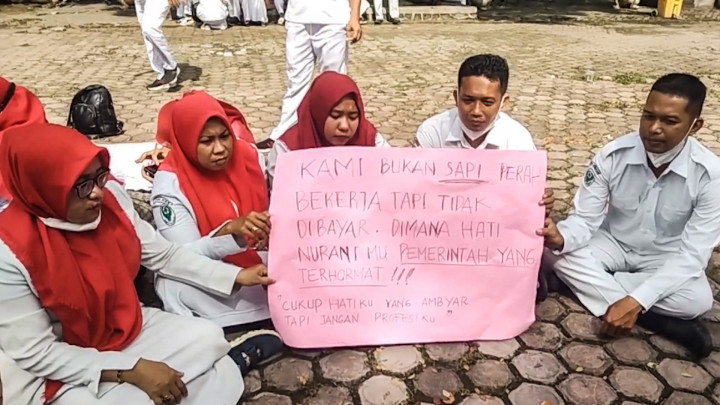 KAMI BUKAN SAPI PERAH
BEKERJA TAPI TIDAK
DIBAYAR. DIMANA HATI
NURANI MU PEMERINTAH YANG
TERHORMAT !!!
"CUKUP HATIKU YANG AMBYAR
TAPI JANGAN PROFESIKU"